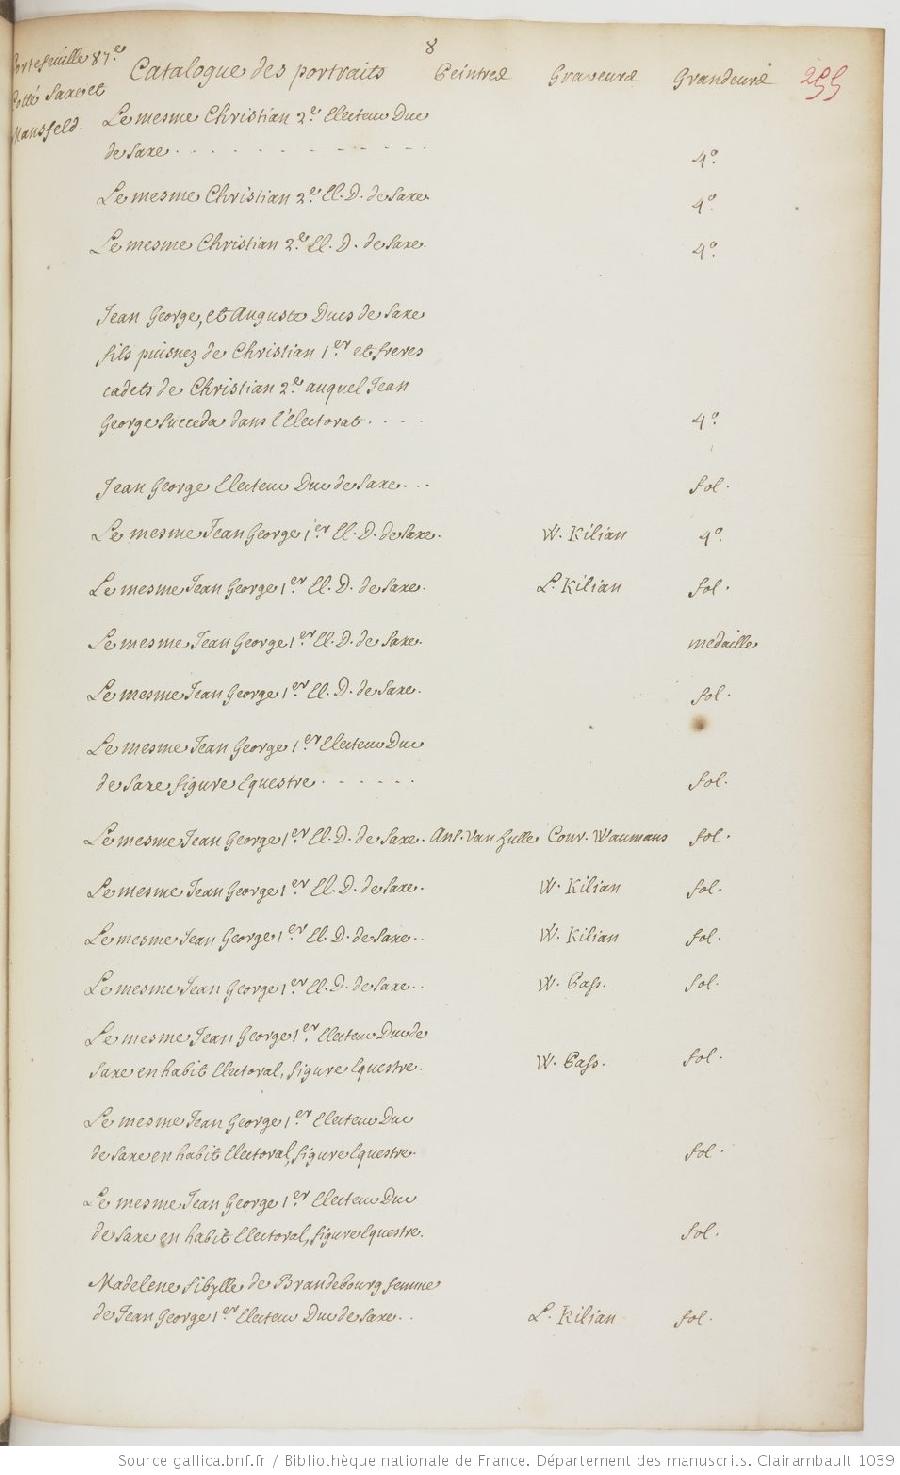 8
Portefeuille 87.e
Cotté Saxe et
Mansfeld
Catalogue des portraits Peintres Graveurs Grandeurs 255
Le mesme Christian 2.e Electeur Duc
de Saxe . . . . . . . . . 4.o
Le mesme Christian 2.e El. D. de Saxe 4.o
Le mesme Christian 2.e El. D. de Saxe 4.o
Jean George, et Auguste Ducs de Saxe
fils puisnez de Christian 1.er et freres
cadets de Christian 2.e auquel Jean
George succeda dans l'Electorat . . . . 4.o
Jean George Electeur Duc de Saxe . . . fol.
Le mesme Jean George 1.er El. D. de Saxe. W. Kilian 4.o
Le mesme Jean George 1.er El. D. de Saxe. L. Kilian fol.
Le mesme Jean George 1.er El. D. de Saxe. medaille
Le mesme Jean George 1.er El. D. de Saxe. fol.
Le mesme Jean George 1.er Electeur Duc
de Saxe figure Equestre . . . . . . fol.
Le mesme Jean George 1.er El. D. de Saxe. Ant. Van Hulle Conr. Waumans fol.
Le mesme Jean George 1.er El. D. de Saxe. W. Kilian fol.
Le mesme Jean George 1.er El. D. de Saxe . . W. Kilian fol.
Le mesme Jean George 1.er El. D. de Saxe . . W. Pass. fol.
Le mesme Jean George 1.er Electeur Duc de
Saxe en habit Electoral, figure Equestre. W. Pass. fol.
Le mesme Jean George 1.er Electeur Duc
de Saxe en habit Electoral, figure Equestre. fol.
Le mesme Jean George 1.er Electeur Duc
de Saxe en habit Electoral, figure Equestre. fol.
Madelene Sibylle de Brandebourg femme
de Jean George 1.er Electeur Duc de Saxe . . L. Kilian fol.
Source gallica.bnf.fr / Bibliothèque nationale de France. Département des manuscrits. Clairambault 1039